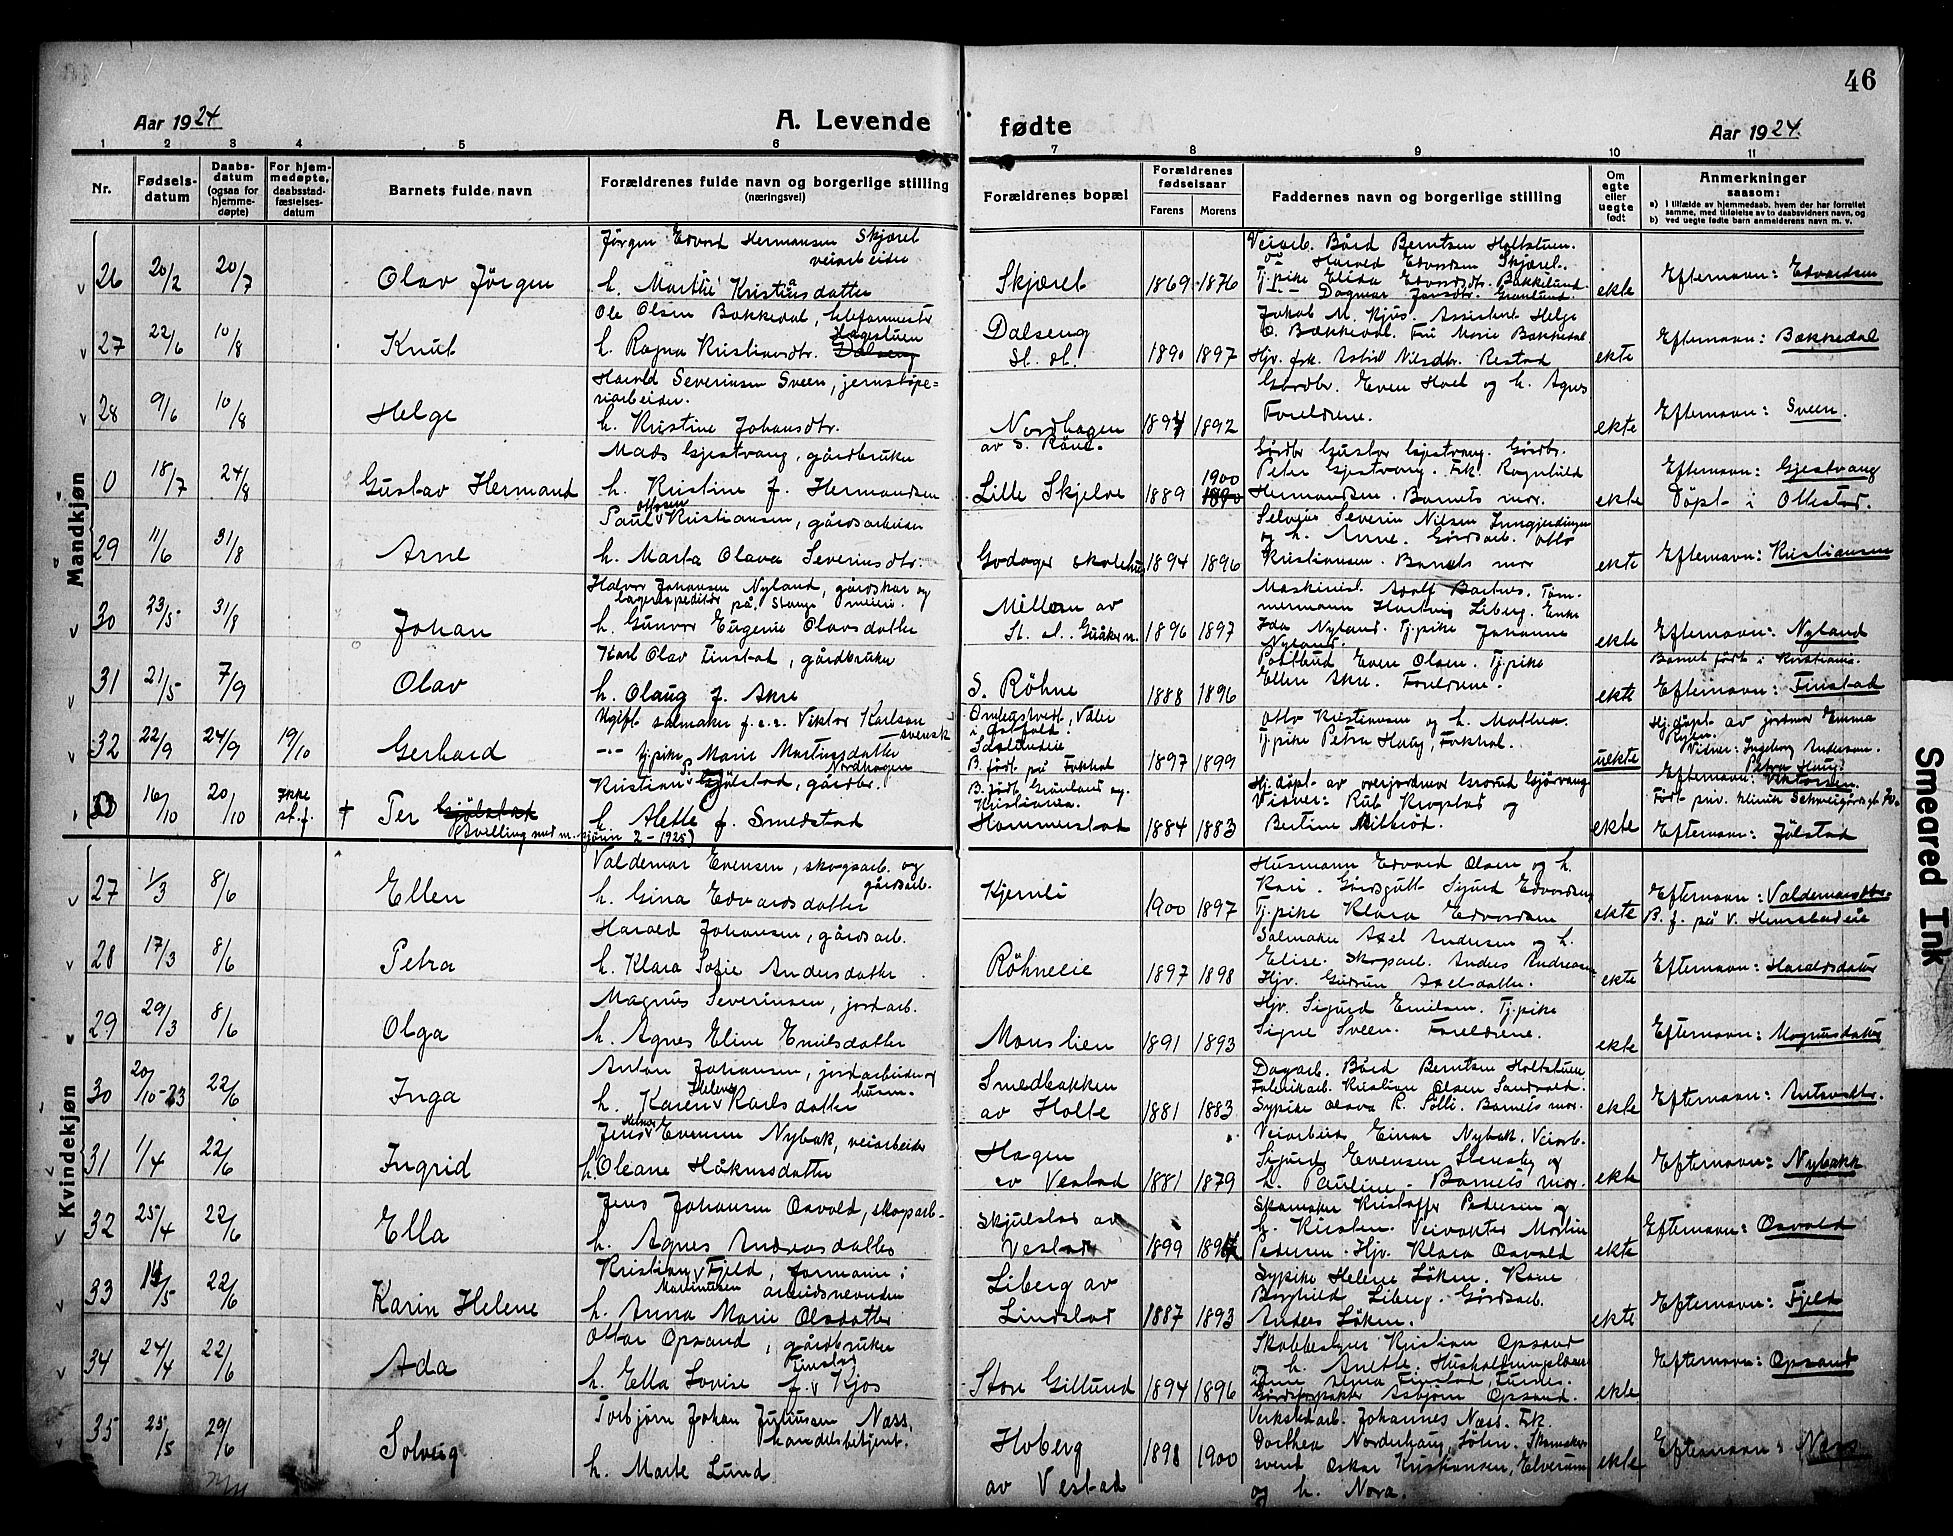 46
Aar 1924
A. Levende fødte
Aar 1924.
1 2 3 4 5 6 7 8 9 10 11
Nr.
Fødsels-
datum
Daabs-
datum
(ogsaa for
hjemme-
døpte)
For hjem-
medøpte,
daabsstad-
fæstelses-
datum
Barnets fulde navn
Forældrenes fulde navn og borgerlige stilling
(næringsvei)
Forældrenes bopæl
Forældrenes
fødselsaar
Farens Morens
Faddernes navn og borgerlige stilling
Om
egte
eller
uegte
født
Anmerkninger
saasom:
a) I tilfælde av hjemmedaab, hvem der har forrettet
samme, med tilføielse av to daabsvidners navn, og
b) ved uegte fødte barn anmelderens navn m. v.
Mandkjøn
26 20/2 20/7 Olav Jörgen
Jörgen Edvard Hermansen Skjæret
veiarbeider
h. Marthe Kristiansdatter
Skjæret 1869 1876
Veiarb. Bård Berntsen Holtstuen.
Harald Edvardsen Skjæret.
Tj.pike Elida Edvardsdtr. Bakkelund.
Dagmar Jensdtr. Grönlund.
ekte Efternavn: Edvardsen
27 22/6 10/8 Knut
Ole Olsen Bækkedal, telefonmester
h. Ragna Kristiansdtr. Hagestuen
Dalseng
Dalseng
St. st. 1890 1897
Jakob M. Kjus. Assistent Helge
O. Bækkedal. Fru Marie Bækkedal
Hjv. frk. Astrid Nilsdtr. Restad
ekte Efternavn: Bækkedal
28 9/6 10/8 Helge
Harald Severinsen Sveen, jernstøpe-
riarbeider.
h. Kristine Johansdtr.
Nordhagen
av S. Röne. 1894 1892
Gårdbr. Even Hoel og h. Agnes
Foreldrene.
ekte Efternavn: Sveen.
0 18/7 24/8 Gustav Hermand
Mads Gjestvang, gårdbruker
h. Kristine f. Hermandsen
Lille Skjelve 1889 1900
1890
Gårdbr. Gustav Gjestvang. Gårdbr.
Peter Gjestvang. Frk. Ragnhild
Hermandsen. Barnets mor.
ekte Efternavn: Gjestvang
Döpt i Ottestad.
29 11/6 31/8 Arne
Ottosen
Paul Kristiansen, gårdsarbeider
h. Marta Olava Severinsdtr.
Godager skolehus 1894 1896
Selveier Severin Nilsen Inngjerdingen
og h. Anne. Gårdsarb. Otto
Kristiansen. Barnets mor
ekte Efternavn: Kristiansen
30 23/5 31/8 Johan
Halvor Johansen Nyland, gårdskar og
lagerexpeditør på Stange meieri.
h. Gunvor Eugenie Olavsdatter
Millom av
St. st. Guåker n. 1896 1897
Maskinist. Adolf Bartnes. Töm-
mermann Hartvig Liberg. Enke
Ida Nyland. Tj.pike Johanne
Nyland.
ekte Efternavn: Nyland
Barnet födt i Kristiania.
31 21/5 7/9 Olav
Karl Olav Finstad, gårdbruker
h. Olaug f. Akre
S. Röhne 1888 1896
Postbud Even Olsen. Tj.pike
Ellen Akre. Foreldrene.
ekte Efternavn: Finstad
32 22/9 24/9 19/10 Gerhard
Ugift salmaker f.e.r. Viktor Karlson
svensk
-"- tj.pike Marie Martinsdatter
Nordhagen
i Östfold.
B. födt på Fokhol 1897 1899
Otto Kristiansen og h. Mathea.
Tj.pike Petra Haug, Fokhol.
uekte
Hj.döpt av jordmor Emma
Vidner: Ingeborg Andersen.
Petra Haug.
Efternavn: Viktorsen.
33 16/10 20/10 Ikke
st.f. † Per Gjölstad
(tvilling med m.kjönn 2 - 1925)
Kristian Gjölstad, gårdbr.
h. Alette f. Smedstad
B. födt Grönland og.
Kristiania.
Hommerstad 1884 1883
Hj.döpt av overjordmor Gjörvang
Vidner: Rut Krogstad og
Bertine Milbröd.
ekte
Födt priv. klinik Schweigårdsgt.
Efternavn: Jölstad
Kvindekjøn
27 1/3 8/6 Ellen
Valdemar Evensen, skogsarb. og
gårdsarb.
h. Gina Edvardsdatter
Kjernli 1900 1897
Husmann Edvard Olsen og h.
Kari. Gårdsgutt Sigurd Edvardsen
Tj.pike Klara Edvardsen
ekte Efternavn: Valdemarsdtr.
B. f. på V. Hemstadeie
28 17/3 8/6 Petra
Harald Johansen, gårdsarb.
h. Klara Sofie Andersdatter
Röhneeie 1897 1898
Salmaker Axel Andersen og h.
Elise. Skogarb. Anders Andreassen
Hjv. Gudrun Axelsdatter.
ekte Efternavn: Haraldsdatter
29 29/3 8/6 Olga
Magnus Severinsen, jordarb.
h. Agnes Eline Emilsdatter
Monslien 1891 1893
Hjv. Sigurd Emilsen. Tj.pike
Signe Sveen. Foreldrene.
ekte Efternavn: Magnusdatter
30 20/10-23 22/6 Inga
Anton Johansen, jordarbeider og
husm.
h. Karen Helene Karlsdatter
Smedbakken
av Holte 1881 1883
Dagarb. Bård Berntsen Holtstuen
Fabrikarb. Kristian Olsen Sandvold.
Sypike Olava R. Solli. Barnets mor.
ekte Efternavn: Antonsdtr.
31 1/4 22/6 Ingrid
Jens Evensen Nybak, veiarbeider
h. Oleane Håkensdatter
Hagen
av Vestad 1881 1879
Veiarbeid. Einar Nybak. Veiarb.
Sigurd Evensen Stensby og
h. Pauline. Barnets mor.
ekte Efternavn: Nybakk
32 25/4 22/6 Ella
Jens Johansen Osvold, skogarb.
h. Agnes Andreasdatter
Skjulstad av
Vestad 1899
Skomaker Kristoffer Pedersen og
h. Kirsten. Veivokter Martin
Pedersen. Hjv. Klara Osvold
ekte Efternavn: Osvold
33 14/5 22/6 Karin Helene
Kristian Fjeld, formann i
Martinusen arbeidsnevnden
h. Anna Marie Olsdatter
Liberg av
Lindstad 1887 1893
Sypike Helene Löken. Kone
Borghild Liberg. Gårdsarb.
Anders Löken.
ekte Efternavn: Fjeld
34 24/4 22/6 Ada
Ottar Opsand, gårdbruker
Finstad
h. Ella Lovise f. Kjos
Store Gillund 1894 1896
Skobbestyrer Kristian Opsand
og h. Anette. Husholdningslærer
inne Anna Finstad, Furnes.
Gårdsforpakter Asbjörn Opsand.
ekte Efternavn: Opsand
35 25/5 29/6 Solveig
Torbjörn Johan Juliussen Næss
handelsbetjent.
h. Marte Lund
Hoberg
av Vestad 1898 1900
Verkstedarb. Johannes Næss. Frk.
Dorthea Norderhaug, Löten. Skomaker-
svend Oskar Kristiansen, Elverum
og h. Nora.
ekte Efternavn: Næss
Smeared Ink